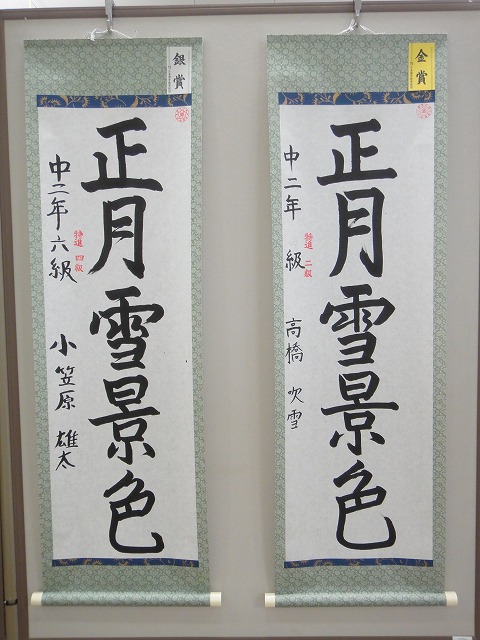 金賞
正月雪景色
中二年 級
特進 二級
高橋 吹雪
銀賞
正月雪景色
中二年六級
特進 四級
小笠原 雄太